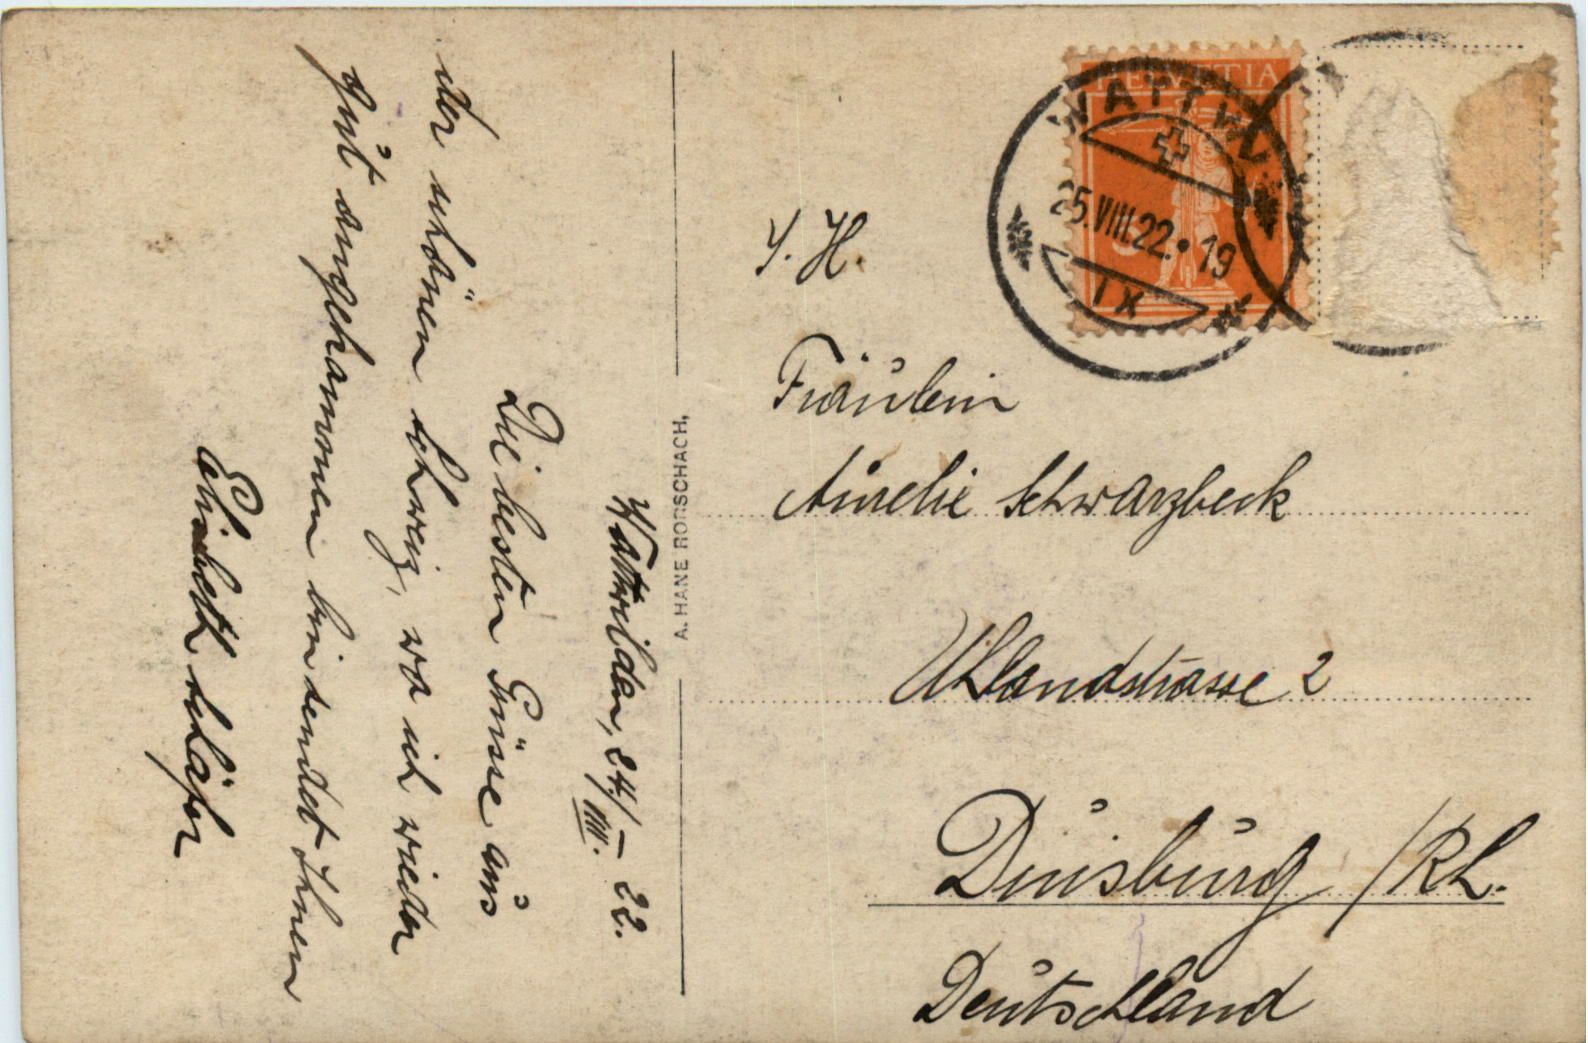 Wattwil den, 24./VIII. 22.
Die besten Grüsse aus
der schönen Schweiz, wo ich wieder
gut angekommen bin sendet Ihnen
Elisabeth Schäfer
A. HANE RORSCHACH,
HELVETIA
WATTWIL
25.VIII.22. 19
IX
H.
Fräulein
Aurelie Schwarzbeck
Uhlandstrasse 2
Duisburg /Rh.
Deutschland